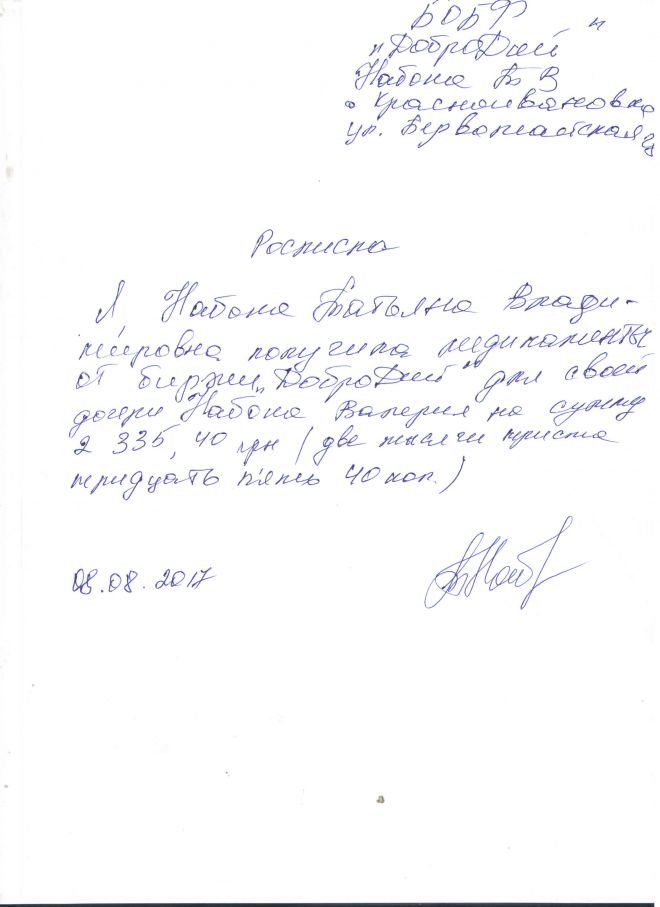 БОБФ
"ДоброДий"
Набока Т В
с Красноивановка
ул. Первомайская
Росписка
Я Набока Татьяна Влади-
мировна получила медикаменты
от биржи "ДоброДий" для своей
дочери Набока Валерия на сумму
2 335,40 грн (две тысячи триста
тридцать п'ять 40 коп.)
08.08.2017